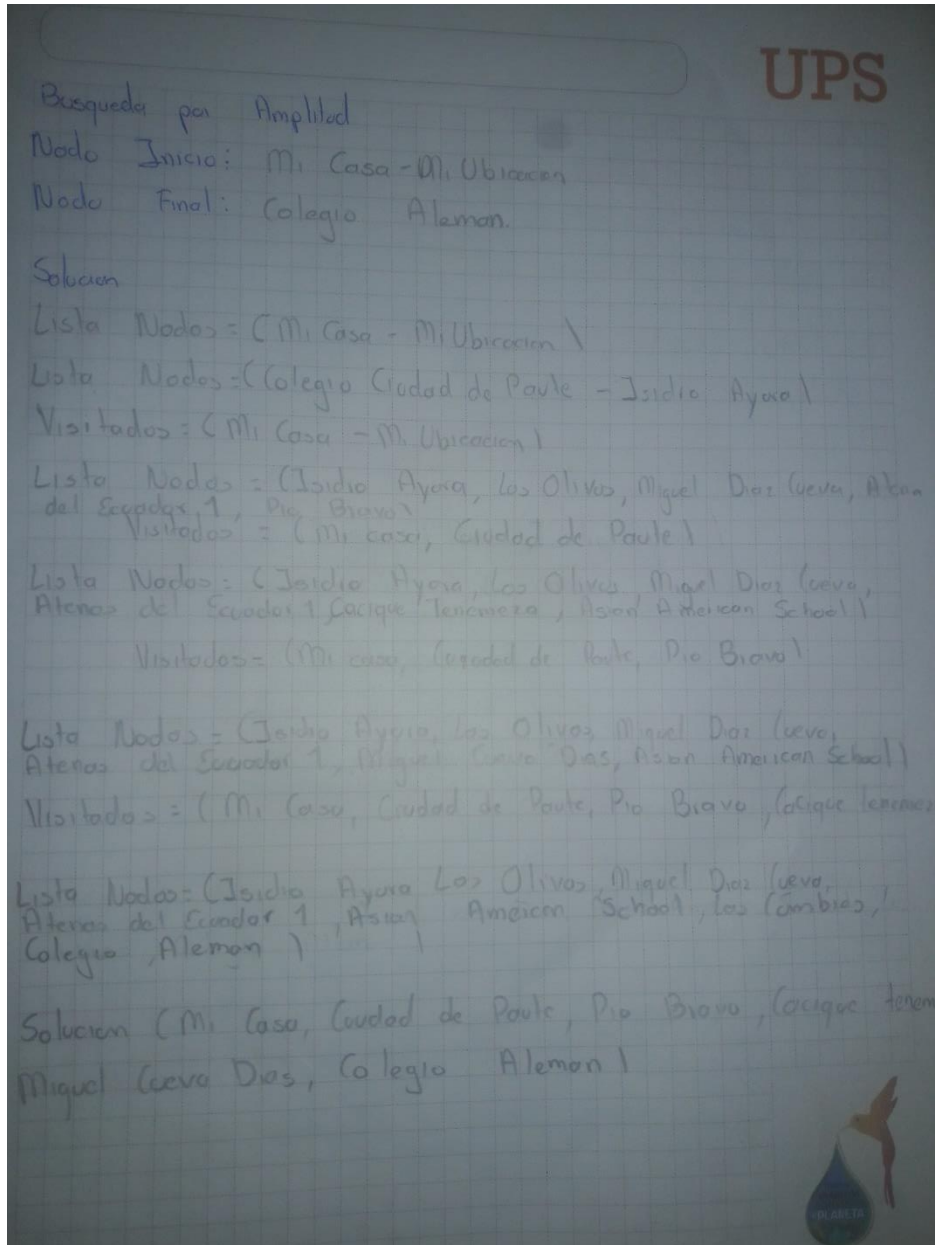 UPS
Busqueda por Amplitod
Nodo Inicio: Mi Casa - Mi Ubicacion
Nodo Final: Colegio Aleman.
Solucion
Lista Nodos = (Mi Casa - Mi Ubicacion)
Lista Nodos = (Colegio Ciudad de Paute - Isidro Ayora)
Visitados = (Mi Casa - Mi Ubicacion)
Lista Nodos = (Isidro Ayora, Los Olivos, Miguel Diaz Cueva, Aten
del Ecuador 1, Pio Bravo)
Visitados = (Mi casa, Ciudad de Paute)
Lista Nodos = (Isidro Ayora, Los Olivos, Miguel Diaz Cueva,
Atenas del Ecuador 1 Cacique Tenemeza, Asian American School)
Visitados = (Mi casa, de Paute, Pio Bravo)
Lista Nodos = (Isidro Ayora, Los Olivos, Miguel Diaz Cueva,
Atenas del Ecuador 1, Miguel Cueva Dias, Asian American School)
Visitados = (Mi Casa, Ciudad de Paute, Pio Bravo, Cacique tenemez
Lista Nodos = (Isidro Ayora Los Olivos, Miguel Diaz Cueva,
Atenas del Ecuador 1, Asian American School, Los
Colegio Aleman)
Solucion (Mi Casa, Ciudad de Paute, Pio Bravo, Cacique tenem
Miguel Cueva Dias, Colegio Aleman)
PLANETA